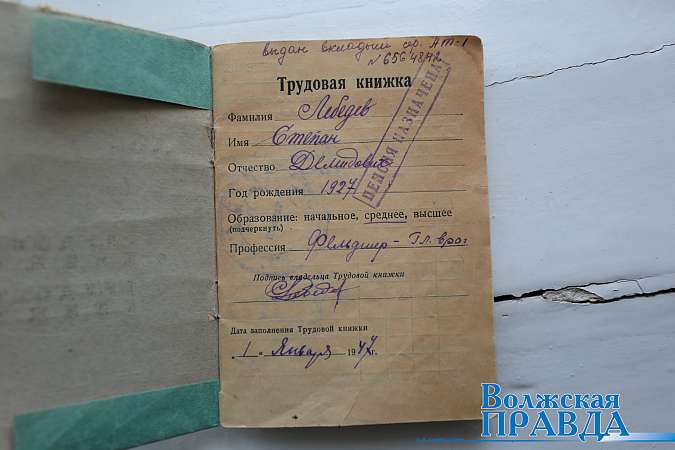 выдан вкладыш сер. АТ-I
№ 6564872
Трудовая книжка
Фамилия Лебедев
Имя Степан
Отчество Демидович
Год рождения 1927
ПЕНСИЯ НАЗНАЧЕНА
Образование: начальное, среднее, высшее
(подчеркнуть)
Профессия Фельдшер - Гл. врач
Подпись владельца Трудовой книжки
Дата заполнения Трудовой книжки
"1" Января 1947 г.
Волжская
ПРАВДА